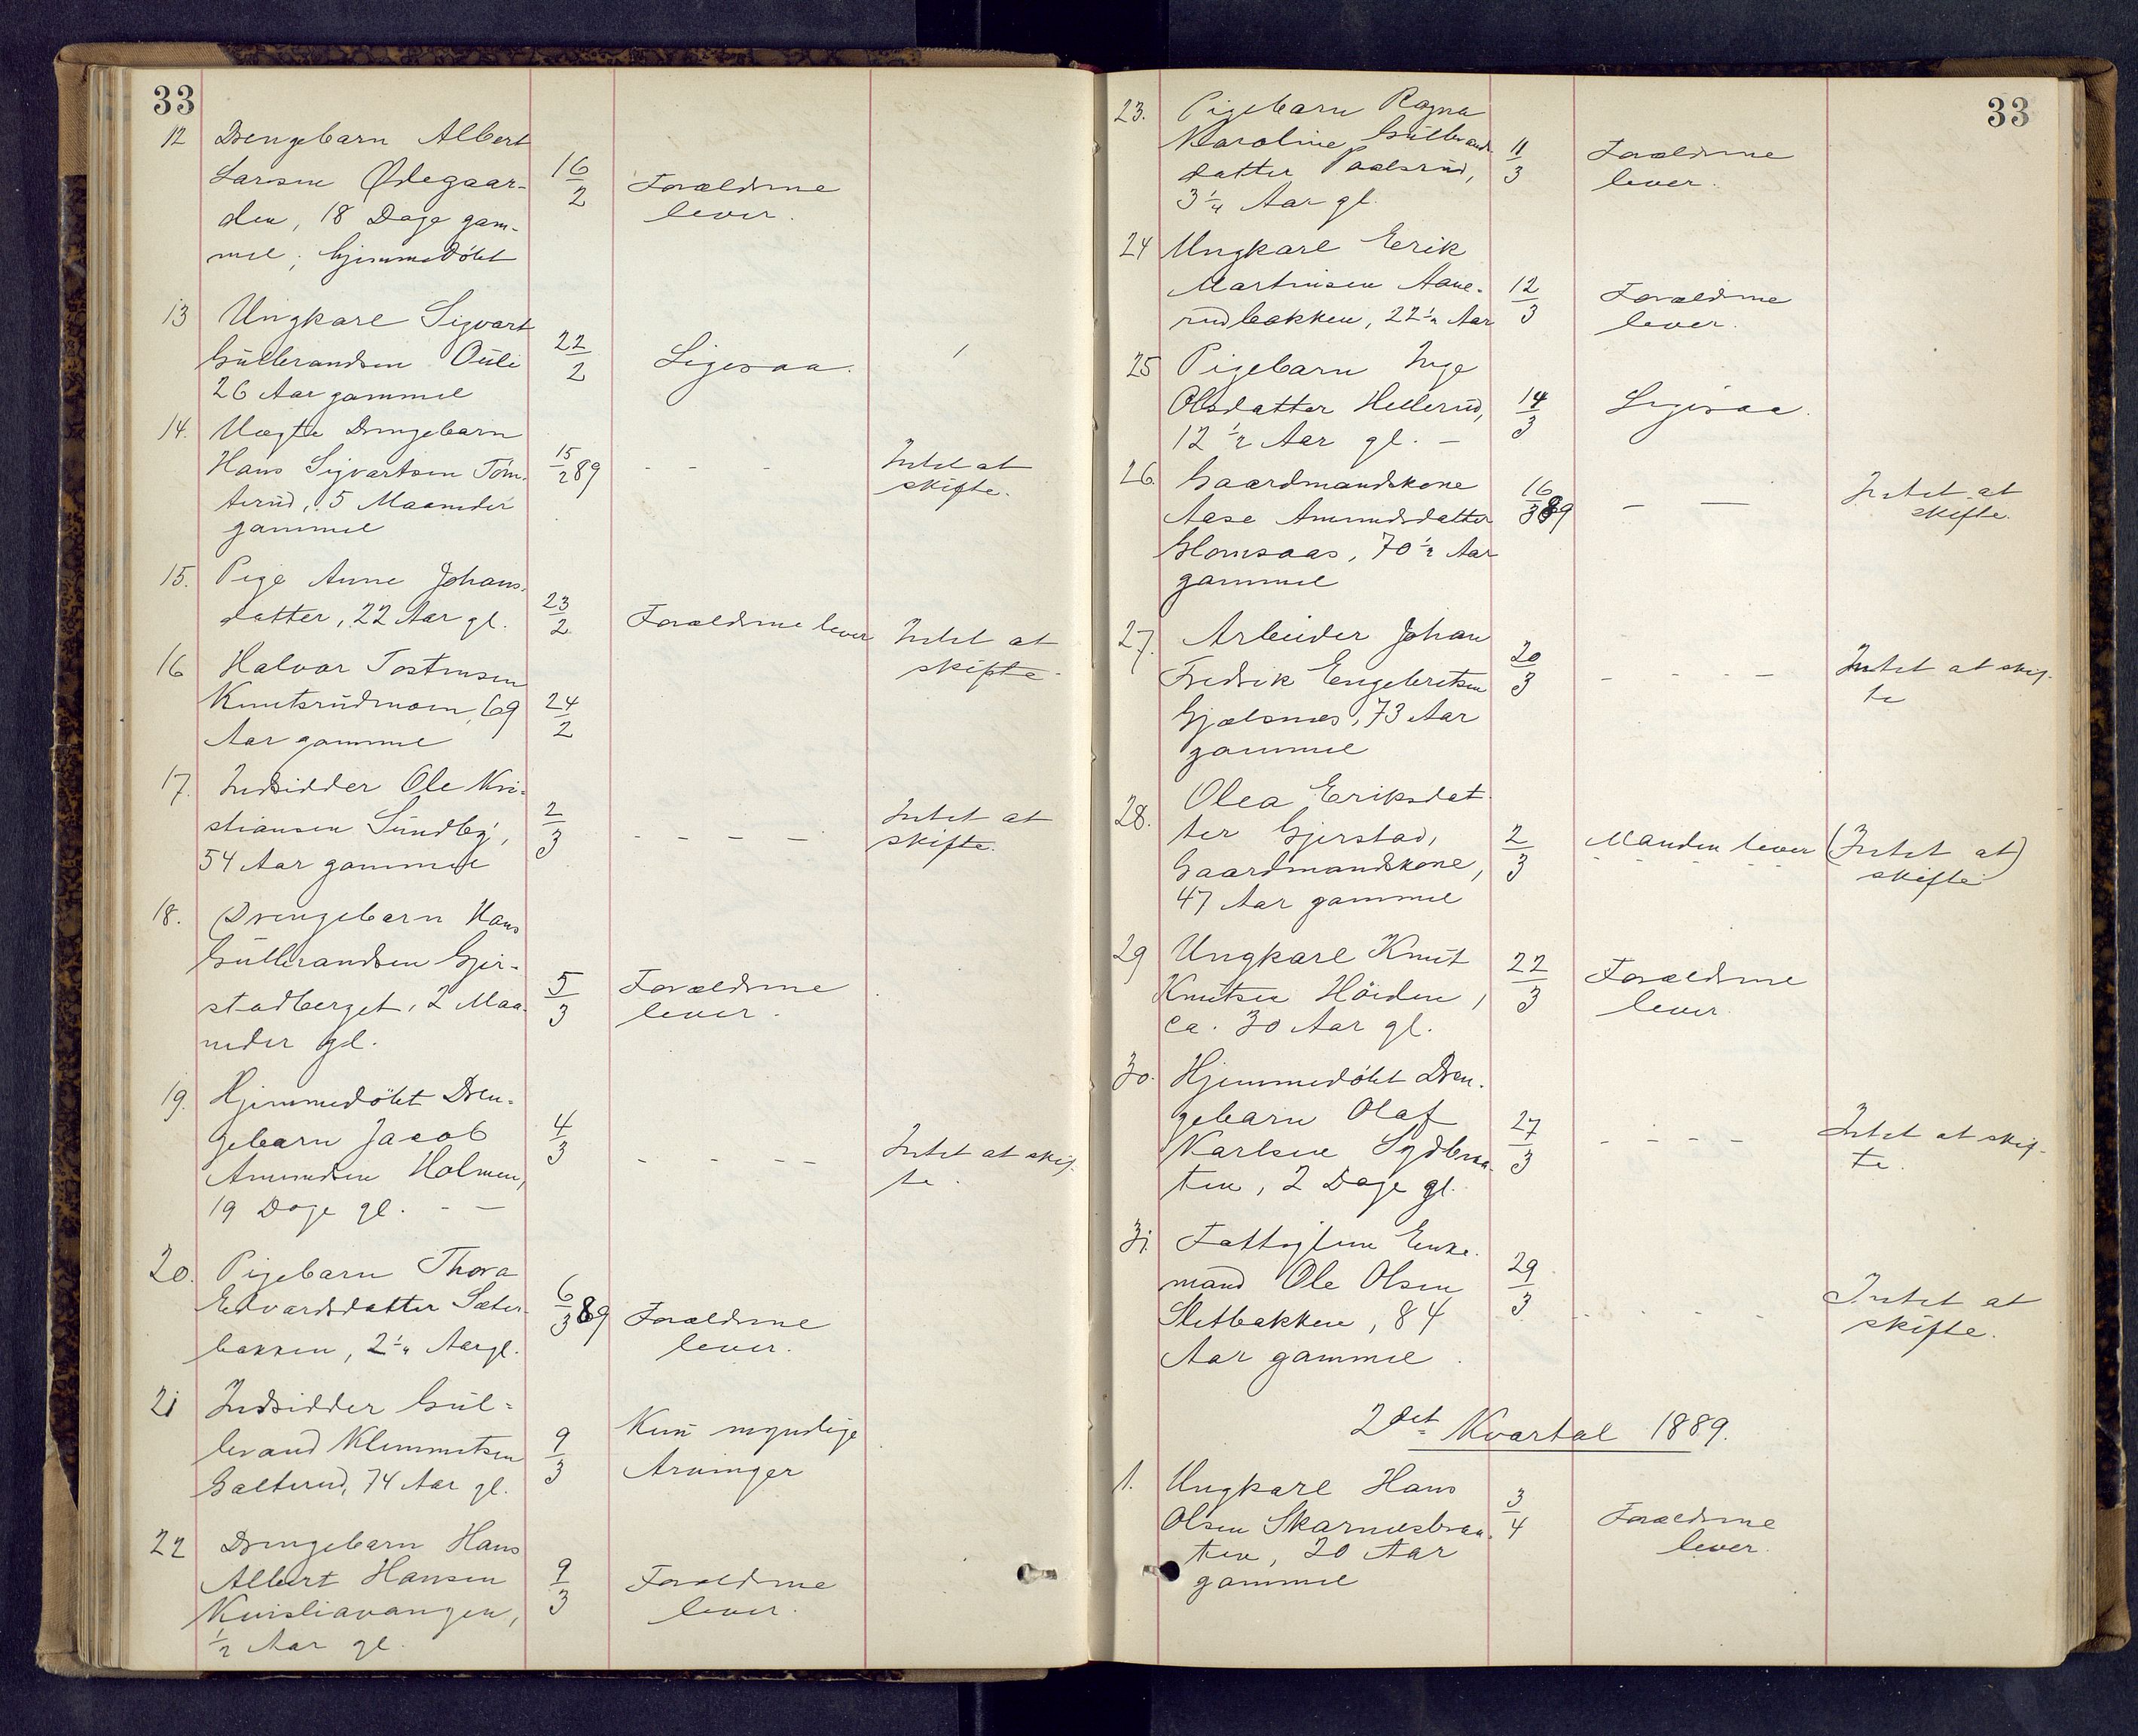 33
12 Drengebarn Albert
Larsen Ødegaar-
den, 18 Dage gam-
mel; hjemmedöbt
16/2
Forældrene
lever.
13 Ungkarl Sigvart
Gulbrandsen Ouli
26 Aar gammel
22/2
Ligesaa.
14. Uægte Drengebarn
Hans Sigvartsen Töm-
terud, 5 Maaneder
gammel
15/2 89
- - -
Intet at
skifte.
15. Pige Anne Johans-
datter, 22 Aar gl.
23/2
Forældrene lever
Intet at
skifte.
16 Halvor Tostensen
Knutsrudmoen, 69
Aar gammel
24/2
17. Indsidder Ole Kri-
stiansen Sundby,
54 Aar gammel
2/3
- - - -
Intet at
skifte.
18. Drengebarn Hans
Gulbrandsen Gjer-
stadberget, 2 Maa-
neder gl.
5/3
Forældrene
lever.
19. Hjemmedöbt Dren-
gebarn Jacob
Amundsen Holmen,
19 Dage gl. - -
4/3
- - - -
Intet at skif-
te.
20. Pigebarn Thora
Edvardsdatter Sæter-
bakken, 2 1/4 Aar gl.
6/3 89
Forældrene
lever.
21 Indsidder Gul-
brand Klemmetsen
Galterud, 74 Aar gl.
9/3
Kun myndige
Arvinger
22 Drengebarn Hans
Albert Hansen
Kvisliavangen,
1/2 Aar gl.
9/3
Forældrene
lever.
33
23. Pigebarn Ragna
Karoline Gulbrands-
datter Paalsrud,
3 1/4 Aar gl.
11/3
Forældrene
lever.
24 Ungkarl Erik
Martinsen Aane-
rudbakken, 22 1/2 Aar
12/3
Forældrene
lever.
25 Pigebarn Inge
Olsdatter Hellerud,
12 1/2 Aar gl. -
14/3
Ligesaa.
26. Gaardmandskone
Aase Amundsdatter
Glomsaas, 70 1/2 Aar
gammel
16/3 89
- -
Intet at
skifte.
27. Arbeider Johan
Fredrik Engebretsen
Gjælsnes, 73 Aar
gammel
20/3
- - - -
Intet at skif-
te
28. Olea Eriksdat-
ter Gjerstad,
Gaardmandskone,
47 Aar gammel
2/3
Manden lever
(Intet at)
skifte
29 Ungkarl Knut
Knutsen Höiden,
ca. 30 Aar gl.
22/3
Forældrene
lever.
30. Hjemmedöbt Dren-
gebarn Olaf
Karlsen Sydbraa-
ten, 2 Dage gl.
27/3
- - - -
Intet at skif-
te.
31. Fattiglem Enke-
mand Ole Olsen
Sletbakken, 84
Aar gammel.
29/3
- - - -
Intet at
skifte.
2det Kvartal 1889.
1. Ungkarl Hans
Olsen Skarnesbraa-
ten, 20 Aar
gammel
3/4
Forældrene
lever.